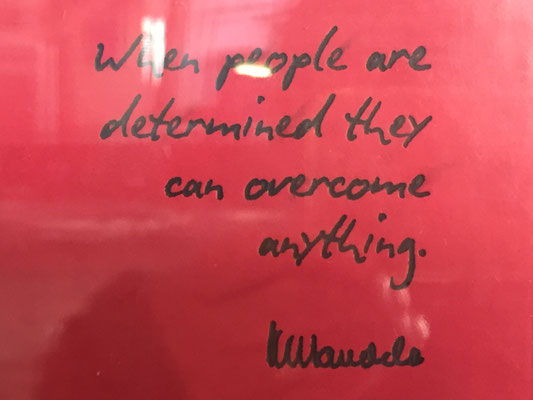 When people are
determined they
can overcome
anything.